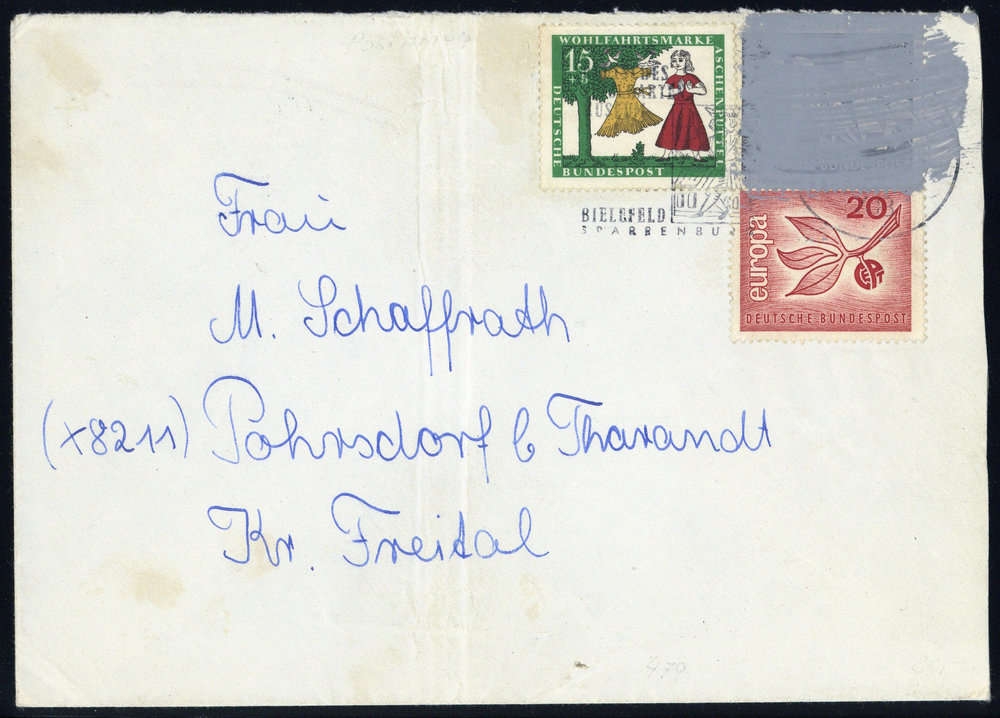 WOHLFAHRTSMARKE
ASCHENPUTTEL
15
+5
DEUTSCHE
BUNDESPOST
BIELEFELD
SPARRENBU
europa
20
CEPT
DEUTSCHE BUNDESPOST
Frau
M. Schaffrath
(x8211) Pohrsdorf b Tharandt
Kr. Freital
479